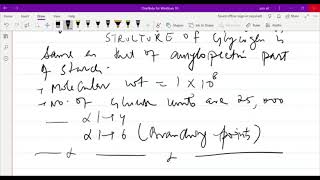 OneNote for Windows 10
STRUCTURE of Glycogen is
same as that of amylopectin part
of starch.
→ Molecular wt = 1 × 10⁸
→ No. of Glucose units are 25,000
α1→4
α1→6 (Branching points)